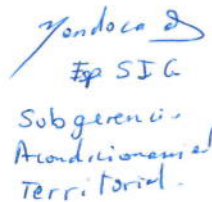 Esp SIG
Subgerencia
Acondicionamient
Territorial.